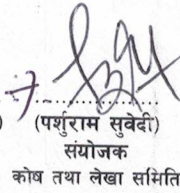 ) (पर्शुराम सुवेदी)
संयोजक
कोष तथा लेखा समिति